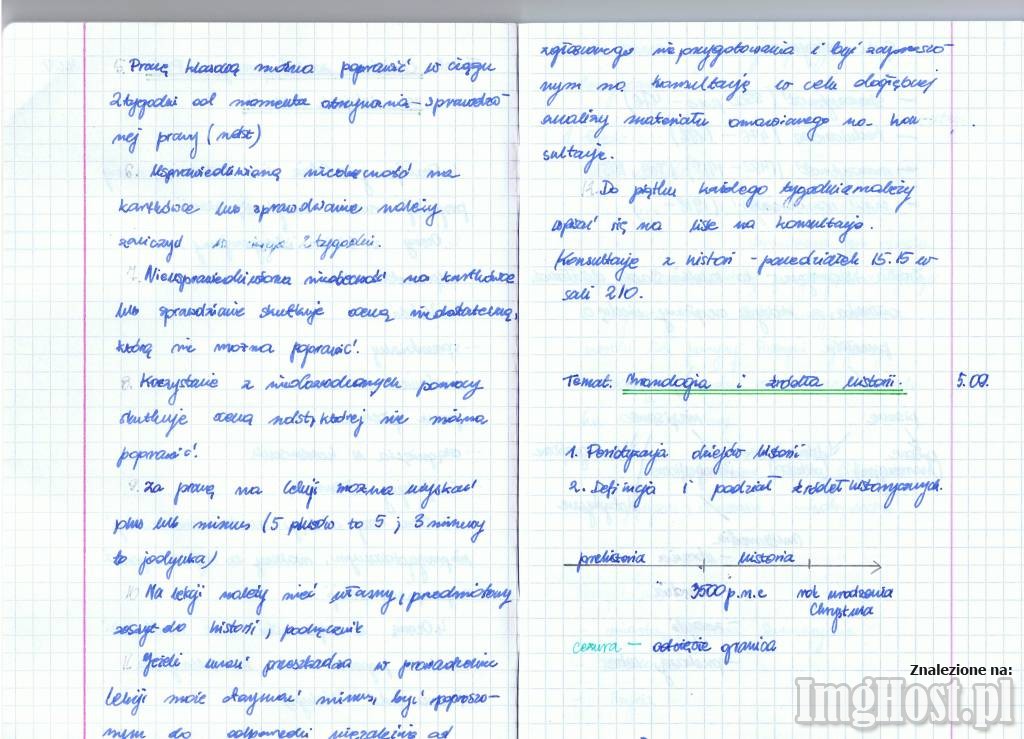 5. Pracę klasową można poprawić w ciągu
2 tygodni od momentu otrzymania sprawdzo-
nej pracy (ndst)
6. Usprawiedliwioną nieobecność na
kartkówce lub sprawdzianie należy
zaliczyć w 2 tygodni.
7. Nieusprawiedliwiona nieobecność na kartkówce
lub sprawdzianie skutkuje oceną niedostateczną,
którą nie można poprawić.
8. Korzystanie z niedozwolonych pomocy
skutkuje oceną ndst, której nie można
poprawić.
9. Za pracę na lekcji można uzyskać
plus lub minus (5 plusów to 5; 3 minusy
to jedynka)
10. Na lekcji należy mieć własny, przedmiotowy
zeszyt do historii, podręcznik
11. Jeżeli uczeń przeszkadza w prowadzeniu
lekcji może otrzymać minus, być poproszo-
nym do odpowiedzi niezależnie od
zgłoszonego nieprzygotowania i być zaproszo-
nym na konsultację w celu dogłębnej
analizy materiału omawianego na kon-
sultacje.
12. Do piątku każdego tygodnia należy
wpisać się na listę na konsultacje.
Konsultacje z histori - poniedziałek 15.15 w
sali 210.
Temat. Chronologia i źródła historii. 5.09.
1. Periodyzacja dziejów historii
2. Definicja i podział źródeł historycznych.
prehistoria historia
3500 p.n.e rok urodzenia
Chrystusa
cezura - granica
Znalezione na:
ImgHost.pl